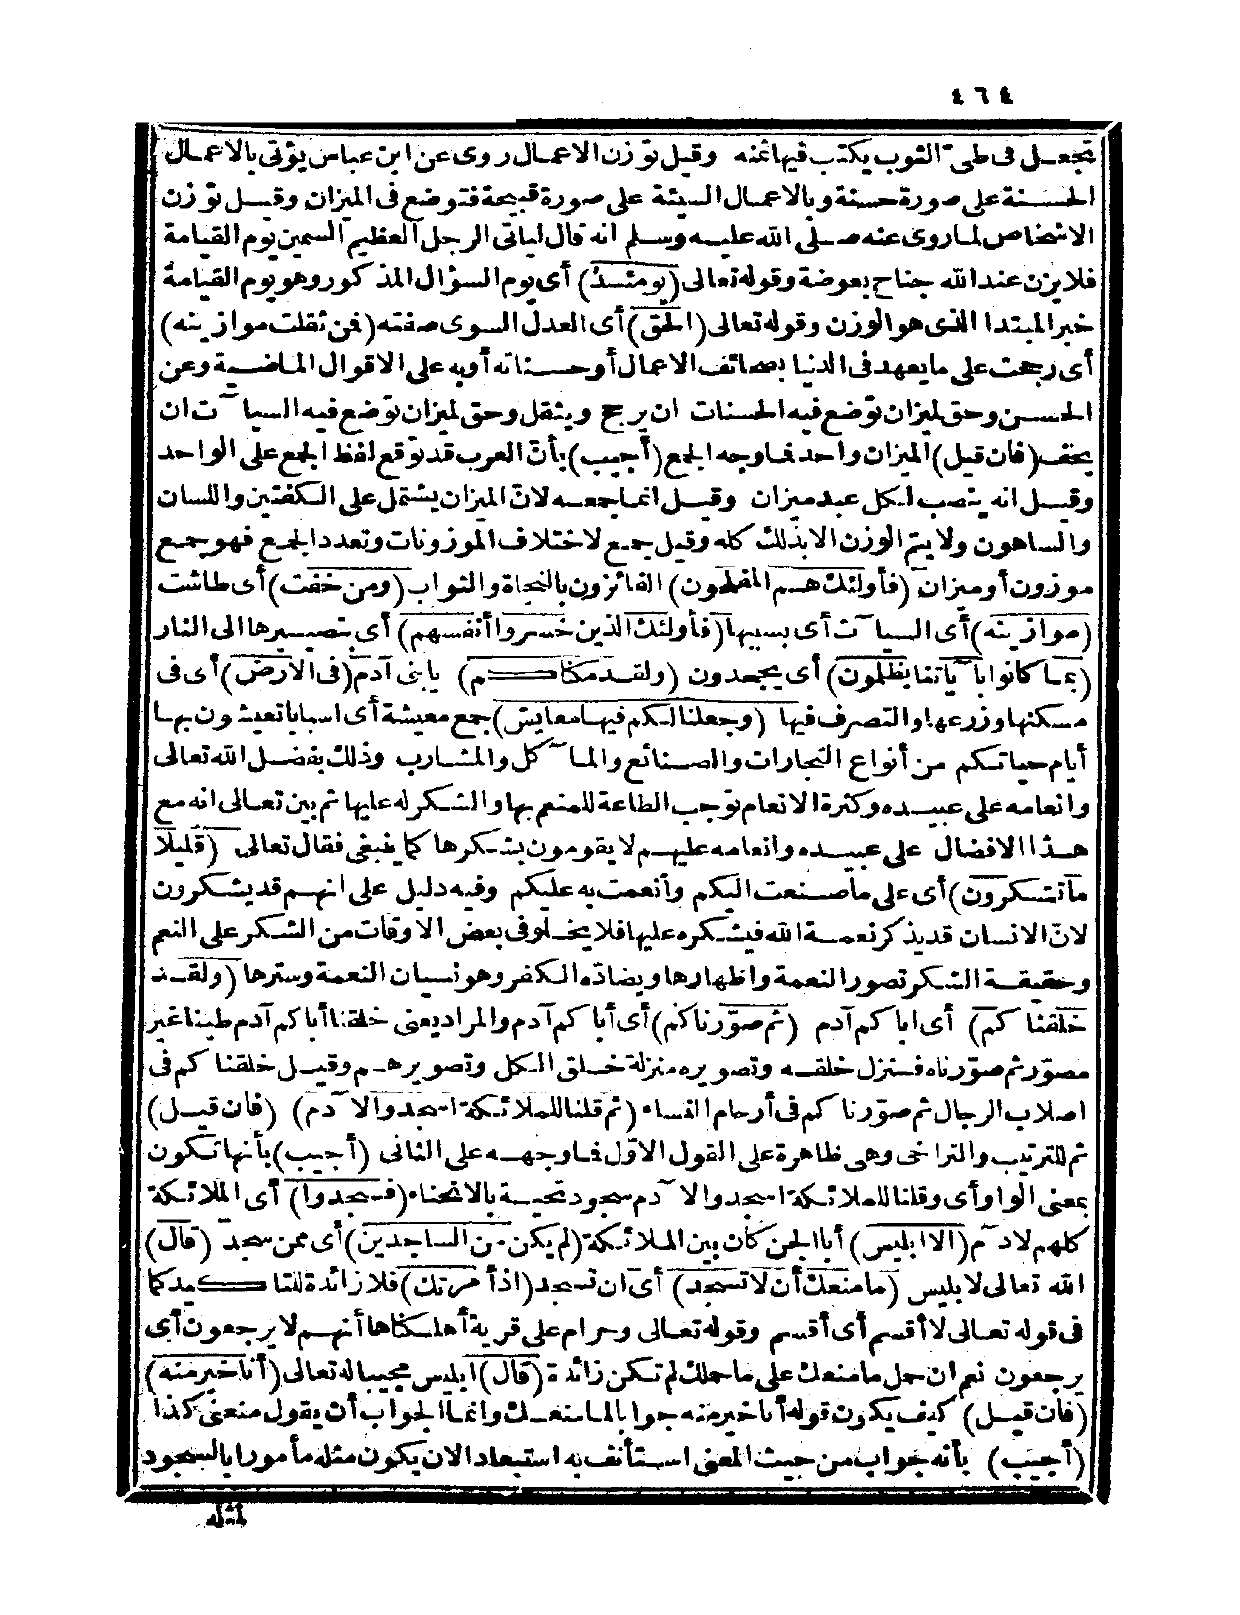 ٤٦٤
تجعل فى طى الثوب يكتب فيها ثمنه وقيل توزن الاعمال روى عن ابن عباس يؤتى بالاعمال
الحسنة على صورة حسنة وبالاعمال السيئة على صورة قبيحة فتوضع فى الميزان وقيل توزن
الاشخاص لما روى عنه صلى الله عليه وسلم انه قال ليأتى الرجل العظيم السمين يوم القيامة
فلا يزن عند الله جناح بعوضة وقوله تعالى (يومئذ) أى يوم السؤال المذكور وهو يوم القيامة
خبر المبتدا الذى هو الوزن وقوله تعالى (الحق) أى العدل السوى صفته (فمن ثقلت موازينه)
أى رجحت على ما يعهد فى الدنيا بصحائف الاعمال أو حسناته أو به على الاقوال الماضية وعن
الحسن وحق لميزان توضع فيه الحسنات ان يرجح ويثقل وحق لميزان توضع فيه السيآت ان
يخف (فان قيل) الميزان واحد فما وجه الجمع (أجيب) بأنّ العرب قد توقع لفظ الجمع على الواحد
وقيل انه ينصب لكل عبد ميزان وقيل انما جمعه لانّ الميزان يشتمل على الكفتين واللسان
والساهون ولا يتم الوزن الا بذلك كله وقيل جمع لاختلاف الموزونات وتعدد الجمع فهو جمع
موزون أو ميزان (فأولئك هم المفلحون) الفائزون بالنجاة والثواب (ومن خفت) أى طاشت
(موازينه) أى السيآت أى بسببها (فأولئك الذين خسروا أنفسهم) أى بتصييرها الى النار
(بما كانوا بآياتنا يظلمون) أى يجحدون (ولقد مكناكم) يا بنى آدم (فى الارض) أى فى
مسكنها وزرعها والتصرف فيها (وجعلنا لكم فيها معايش) جمع معيشة أى اسبابا تعيشون بها
أيام حياتكم من أنواع التجارات والصنائع والمآكل والمشارب وذلك بفضل الله تعالى
وانعامه على عبيده وكثرة الانعام توجب الطاعة للمنعم بها والشكر له عليها ثم بين تعالى انه مع
هذا الافضال على عبيده وانعامه عليهم لا يقومون بشكرها كما ينبغى فقال تعالى (قليلا
ما تشكرون) أى على ما صنعت اليكم وأنعمت به عليكم وفيه دليل على انهم قد يشكرون
لانّ الانسان قد يذكر نعمة الله فيشكره عليها فلا يخلو فى بعض الاوقات من الشكر على النعم
وحقيقة الشكر تصور النعمة واظهارها ويضادّه الكفر وهو نسيان النعمة وسترها (ولقد
خلقناكم) أى اباكم آدم (ثم صوّرناكم) أى أباكم آدم والمراد يعنى خلقنا أباكم آدم طينا غير
مصوّر ثم صوّرناه فنزل خلقه وتصويره منزلة خلق الكل وتصويرهم وقيل خلقناكم فى
اصلاب الرجال ثم صوّرناكم فى أرحام النساء (ثم قلنا للملائكة اسجدوا لآدم) (فان قيل)
ثم للترتيب والتراخى وهى ظاهرة على القول الاوّل فما وجهه على الثانى (أجيب) بأنها تكون
بمعنى الواو أى وقلنا للملائكة اسجدوا لآدم سجود تحية بالانحناء (فسجدوا) أى الملائكة
كلهم لآدم (الا ابليس) أبا الجن كان بين الملائكة (لم يكن من الساجدين) أى ممن سجد (قال)
الله تعالى لابليس (ما منعك أن لا تسجد) أى ان تسجد (اذ أمرتك) فلا زائدة للتاكيد كما
فى قوله تعالى لا أقسم أى أقسم وقوله تعالى وحرام على قرية أهلكناها أنهم لا يرجعون أى
يرجعون نعم ان حمل ما منعك على ما حملك لم تكن زائدة (قال) ابليس مجيبا له تعالى (أنا خير منه)
(فان قيل) كيف يكون قوله أنا خير منه جوابا لما منعك وانما الجواب أن يقول منعنى كذا
(أجيب) بأنه جواب من حيث المعنى استأنف به استبعادا لان يكون مثله مأمورا بالسجود
لمثله